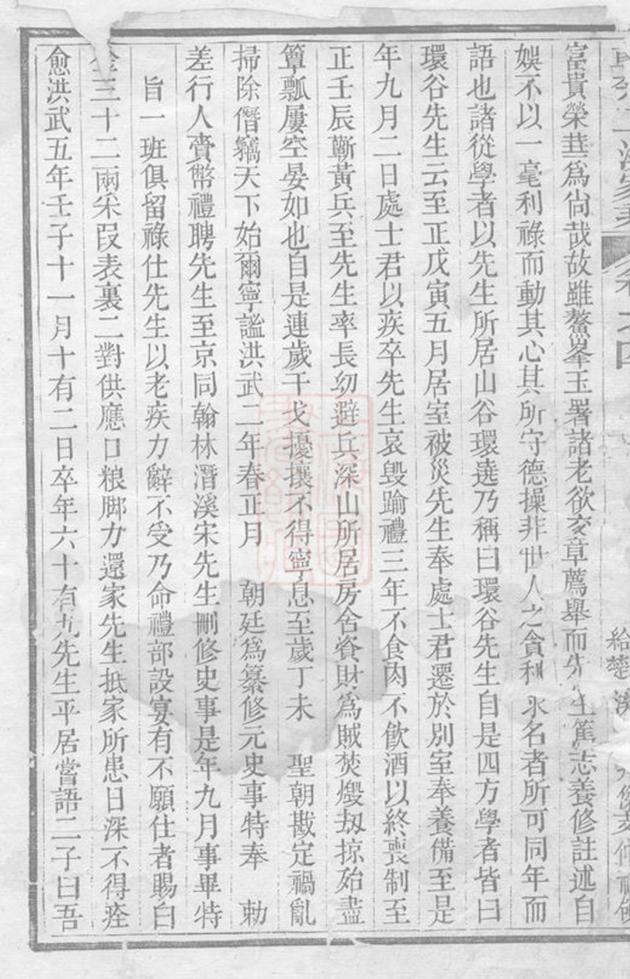 富貴榮華為尚哉故雖鰲峯玉署諸老欲交章薦舉而先生篤志養修註述自
娛不以一毫利祿而動其心其所守德操非世人之貪利求名者所可同年而
語也諸從學者以先生所居山谷環遶乃稱曰環谷先生自是四方學者皆曰
環谷先生云至正戊寅五月居室被災先生奉處士君遷於別室奉養備至是
年九月二日處士君以疾卒先生哀毀踰禮三年不食肉不飲酒以終喪制至
正壬辰蘄黃兵至先生率長幼避兵深山所居房舍資財為賊焚燬刼掠始盡
簞瓢屢空晏如也自是連歲干戈擾攘不得寧息至歲丁未 聖朝戡定禍亂
掃除僭竊天下始爾寧謐洪武二年春正月 朝廷為纂修元史事特奉 勅
差行人賫幣禮聘先生至京同翰林潛溪宋先生刪修史事是年九月事畢特
旨一班俱留祿仕先生以老疾力辭不受乃命禮部設宴有不願仕者賜白
金三十二兩采段表裏二對供應口粮脚力還家先生抵家所患日深不得痊
愈洪武五年壬子十一月十有二日卒年六十有九先生平居嘗語二子曰吾